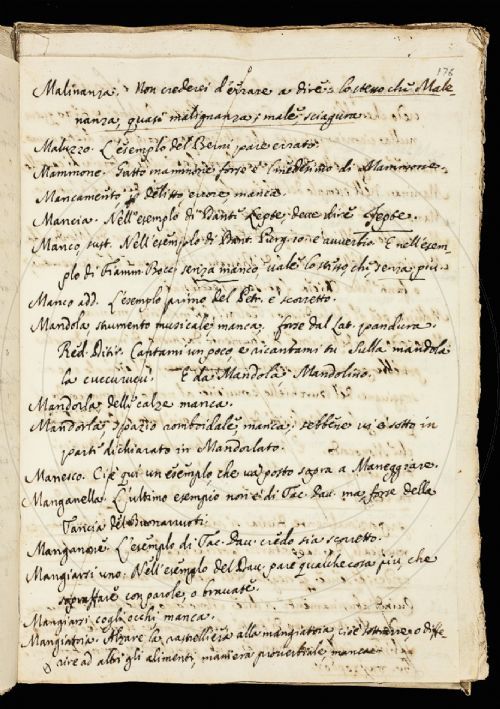 176
Malinanza. Non crederei d'errare a dire lo stesso che Male-
nanza, quasi malignanza; male, sciagura.
Malizzo. L'esempio del Berni pare errato.
Mammone. Gatto mammone forse è l'medesimo di Mammone.
Mancamento p delitto errore, manca.
Mancia. Nell'esempio di Dante Lepte, deve dire Jepte.
Manco, sust. Nell'esempio di Dant. Purg. 10. è avverbio. E nell'esem-
plo di Framm. Bocc. senza manco, vale lo stesso, che senza più.
Manco add. L'esempio primo del Petr. è scorretto.
Mandola, strumento musicale, manca, forse dal Lat. pandura.
Red. Ditir. Cantami un poco e ricantami tu Sulla mandola
la cuccurucù. E da Mandola Mandolino.
Mandorla delle calze manca.
Mandorla, spazio romboidale, manca; sebbene vi è sotto in
parte dichiarato in Mandorlato.
Manesco. C'è qui un esemplo che va posto sopra a Maneggiare.
Manganella. L'ultimo esempio non è di Tac. Dav. ma forse della
Tancia del Buonarruoti.
Manganare. L'esemplo di Tac. Dav. credo sia scorretto.
Mangiarsi uno. Nell'esemplo del Dav. pare qualche cosa più che
sopraffare con parole, o bravate.
Mangiarsi cogli occhi manca.
Mangiatoia. Alzare la rastrelliera alla mangiatoia cioè sottrarre o diffe-
rire ad altri gli alimenti, maniera proverbiale, manca.